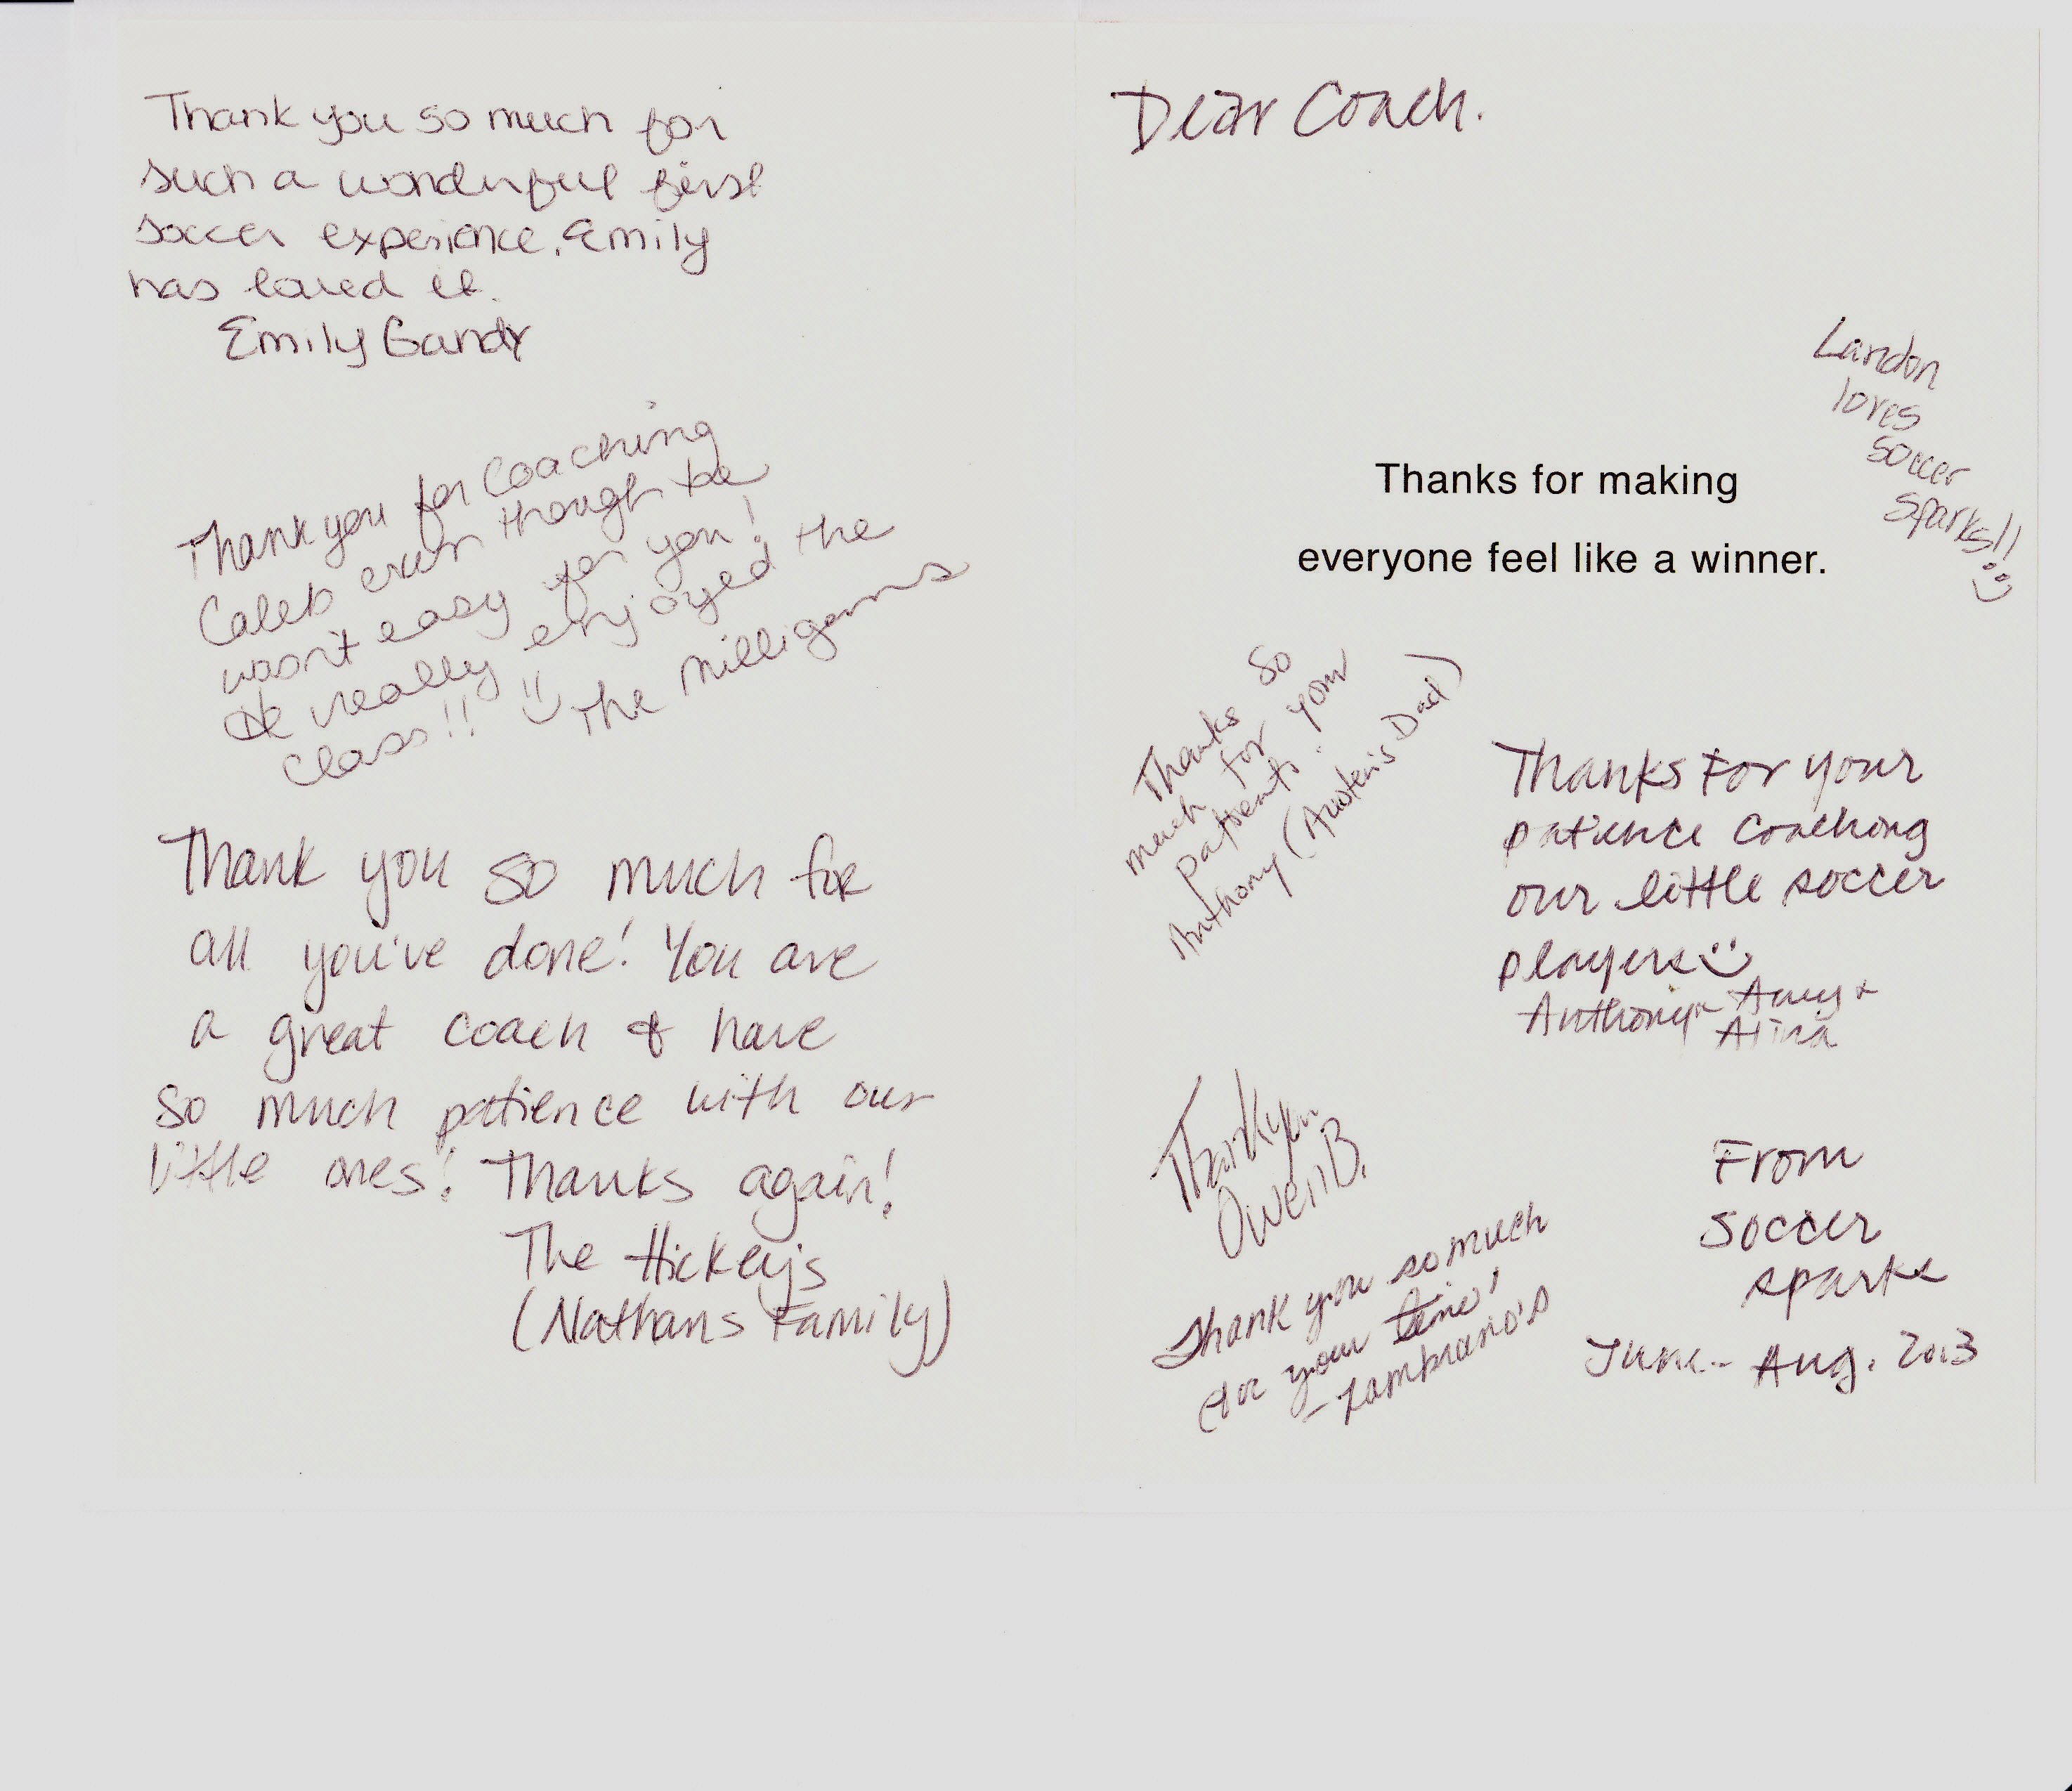 Thank you so much for
such a wonderful first
soccer experience. Emily
has loved it.
Emily Gandy
Thank you for coaching
Caleb even though he
wasn't easy for you!
He really enjoyed the
class!! The Milligans
Thank you so much for
all you've done! You are
a great coach & have
so much patience with our
little ones! Thanks again!
The Hickey's
(Nathans Family)
Dear Coach.
Landon
loves
soccer
sparks!!
Thanks for making
everyone feel like a winner.
Thanks so
much for your
Anthony (Austin's Dad)
Thanks For your
patience coaching
our little soccer
players
Anthony
Thank you
Owen B.
Thank you so much
for your time!
- Zambrano's
From
Soccer
sparks
June - Aug. 2013